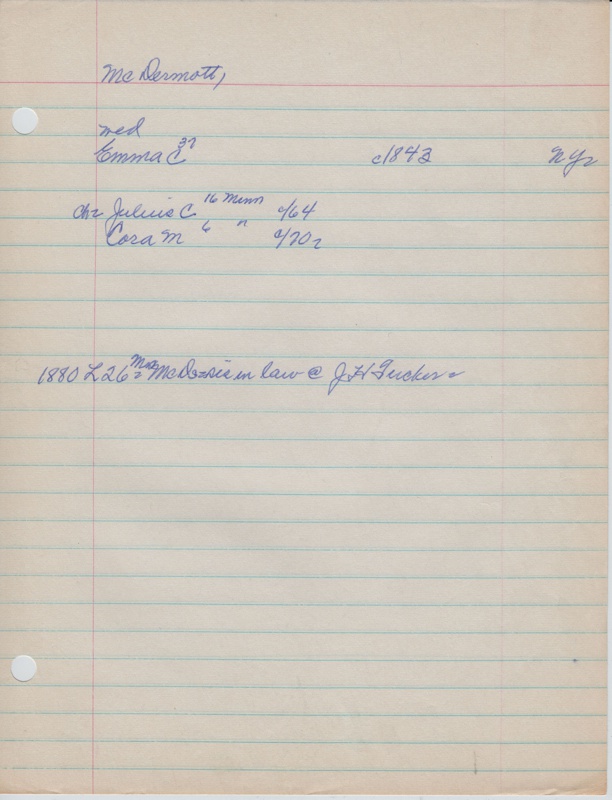 McDermott,
wed
Emma C 37 c1843 NY=
ch= Julius C 16 Minn c/64
Cora M 6 " c/70=
1880 L26= Mrs McD= sis in law @ J H Tucker=